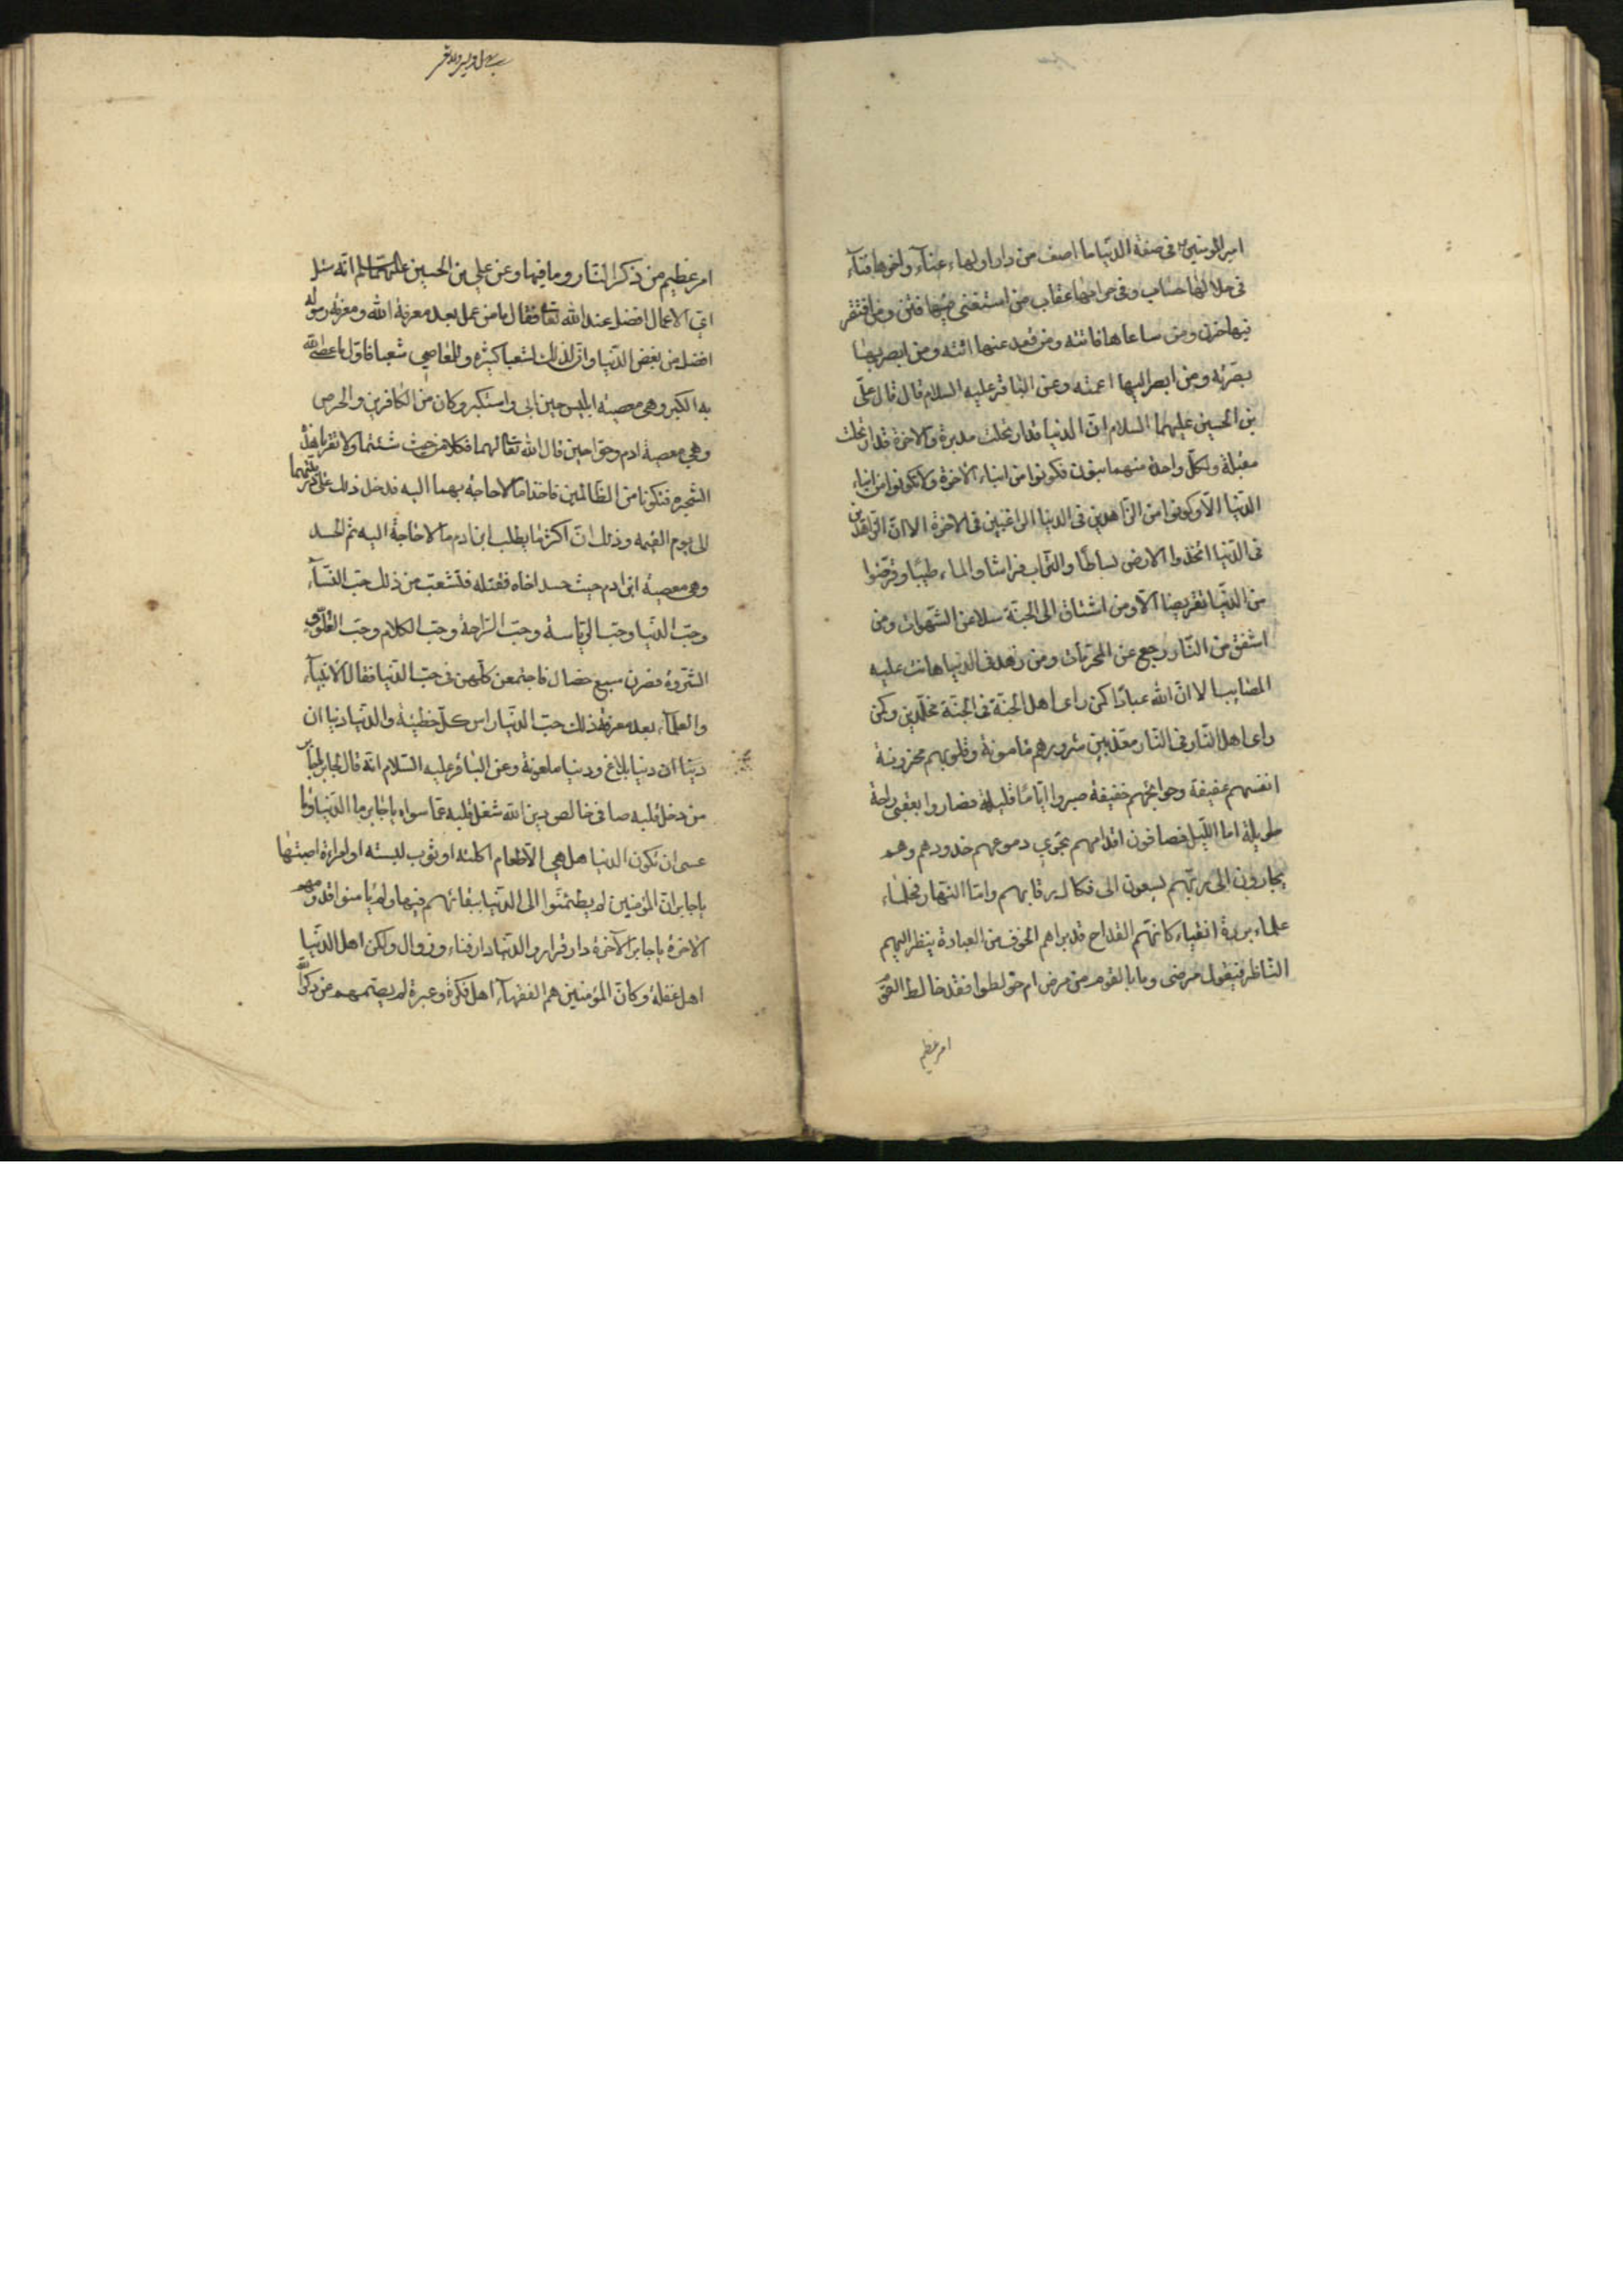 امير المومنين ع فى صفة الدنيا ما اصف من دار اولها عنآء واخرها فنآء
فى حلالها حساب وفى حرامها عقاب من استغنى فيها فتن ومن افتقر
فيها حزن ومن ساعاها فاتته ومن قعد عنها اتته ومن ابصر بها
بصرته ومن ابصر اليها اعمته وعن الباقر عليه السلام قال قال على
بن الحسين عليهما السلام ان الدنيا قد ارتحلت مدبرة والاخرة قد ارتحلت
مقبلة ولكل واحدة منهما بنون فكونوا من ابناء الاخرة ولا تكونوا من ابناء
الدنيا الا وكونوا من الزاهدين فى الدنيا الراغبين فى الاخرة الا ان الزاهدين
فى الدنيا اتخذوا الارض بساطا والتراب فراشا والماء طيبا وقرضوا
من الدنيا تقريضا الا ومن اشتاق الى الجنة سلا من الشهوات ومن
اشفق من النار رجع عن المحرمات ومن زهد فى الدنيا هانت عليه
المصايب الا ان الله عبادا كمن راى اهل الجنة فى الجنة مخلدين وكمن
راى اهل النار فى النار معذبين شرورهم مامونة وقلوبهم محزونة
انفسهم عفيفة وحوائجهم خفيفة صبروا اياما قليلة فصاروا بعقبى راحة
طويلة اما الليل فصافون اقدامهم تجرى دموعهم خدودهم وهم
يجارون الى ربهم يسعون الى فكاك رقابهم واما النهار فحلماء
علماء بررة اتقياء كانهم القداح قد براهم الخوف من العبادة ينظر اليهم
الناظر فيقول مرضى وما بالقوم من مرض ام خولطوا فقد خالط القوم
امر عظيم
امر عظيم من ذكر النار وما فيها وعن على بن الحسين عليهما السلم انه سئل
اى الاعمال افضل عند الله تعا فقال ما من عمل بعد معرفة الله ومعرفة رسوله
افضل من بغض الدنيا وان لذلك لشعبا كثيرة وللمعاصى شعبا فاول ما عصى الله
به الكبر وهى معصية ابليس حين ابى واستكبر وكان من الكافرين والحرص
وهى معصية ادم وحوا حين قال الله تعا لهما فكلا من حيث شئتما ولا تقربا هذه
الشجرة فتكونا من الظالمين فاخذا ما لا حاجة بهما اليه فدخل ذلك على ذريتهما
الى يوم القيمه وذلك ان اكثر ما يطلب ابن ادم ما لا حاجة اليه ثم الحسد
وهى معصية ابن ادم حيث حسد اخاه فقتله فتشعب من ذلك حب النسآء
وحب الدنيا وحب الرياسة وحب الراحة وحب الكلام وحب العلو و
الثروة فصرن سبع خصال فاجتمعن كلهن فى حب الدنيا فقال الانبيآء
والعلمآء بعد معرفة ذلك حب الدنيا راس كل خطيئة والدنيا دنيا ان
دنيا ان دنيا بلاغ ودنيا ملعونة وعن الباقر عليه السلام انه قال لجابر يا جابر
من دخل قلبه صافى خالص دين الله شغل قلبه عما سواه يا جابر ما الدنيا وما
عسى ان تكون الدنيا هل هى الا طعام اكلته او ثوب لبسته او امراءة اصبتها
يا جابر ان المؤمنين لم يطمئنوا الى الدنيا ببقائهم فيها ولم يامنوا قدومهم
الاخرة يا جابر الآخرة دار قرار والدنيا دار فناء وزوال ولكن اهل الدنيا
اهل غفلة وكان المؤمنين هم الفقهآء اهل فكرة وعبرة لم يصمهم عن ذكر الله